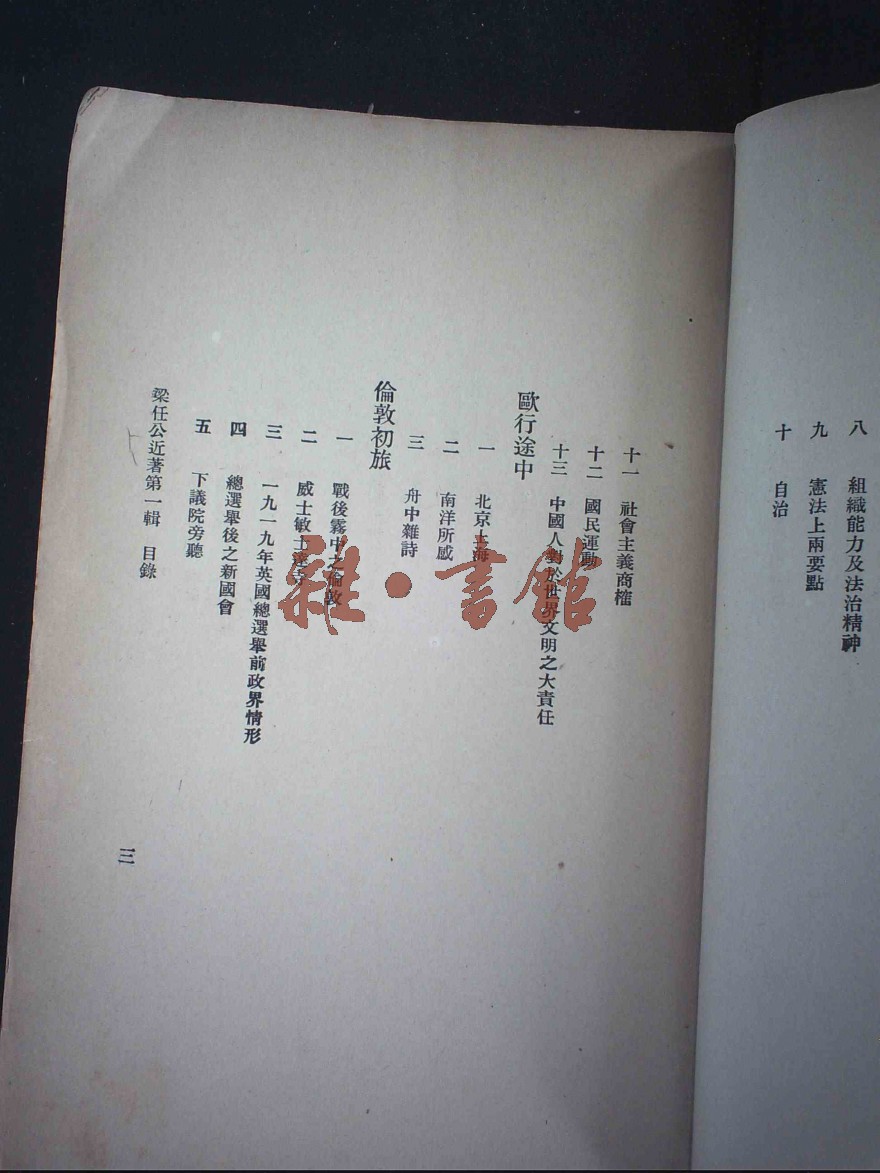 八　組織能力及法治精神
九　憲法上兩要點
十　自治
十一　社會主義商榷
十二　國民運動
十三　中國人對於世界文明之大責任
歐行途中
一　北京上海
二　南洋所感
三　舟中雜詩
倫敦初旅
一　戰後霧中之倫敦
二　威士敏士達寺
三　一九一九年英國總選舉前政界情形
四　總選舉後之新國會
五　下議院旁聽
梁任公近著第一輯　目錄
三
雜·書館